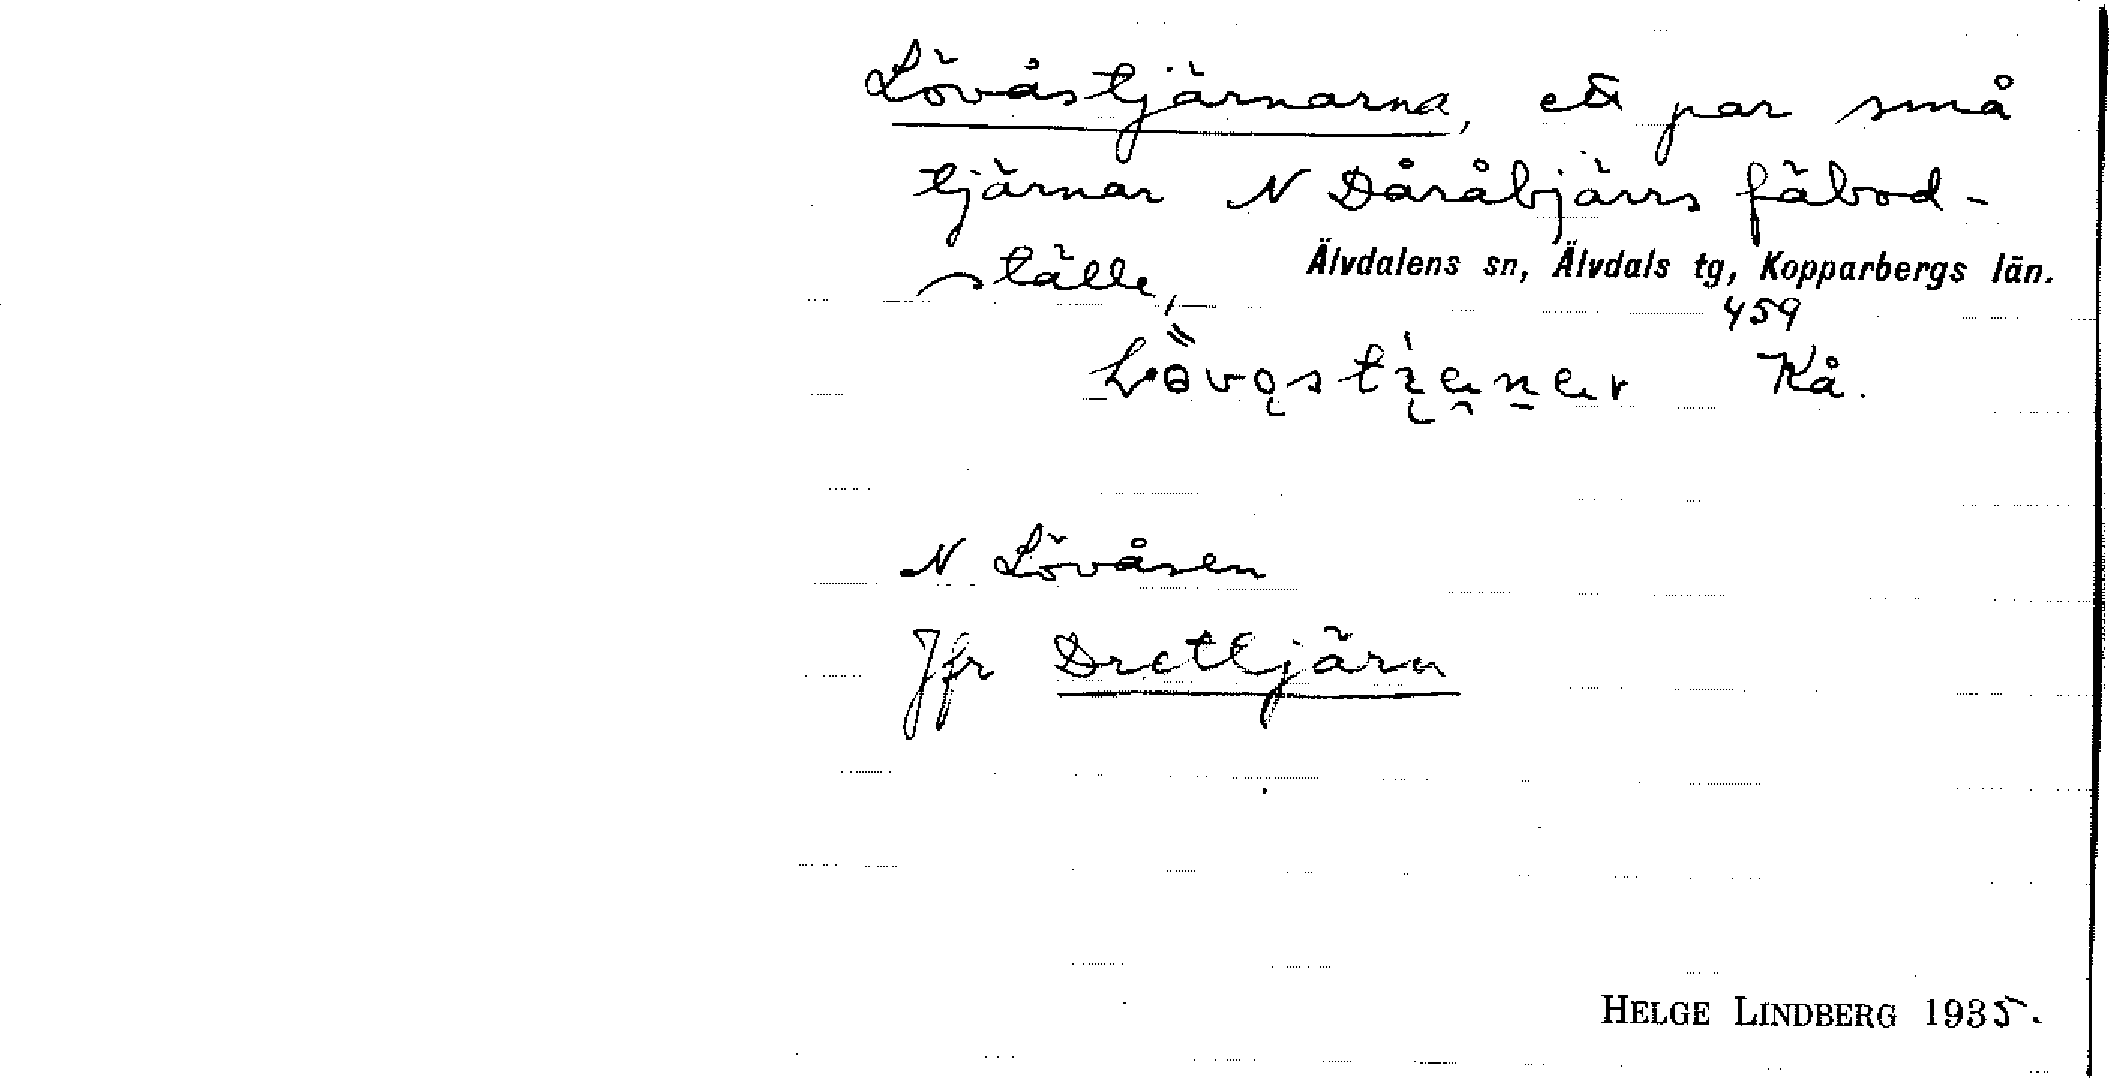 Lövåstjärnarna, ett par små
tjärnar N Dåråbjärrs fäbod-
ställe,
Älvdalens sn, Älvdals tg, Kopparbergs län.
459
Kå.
N Lövåsen
Jfr Drettjärn
HELGE LINDBERG 1935.